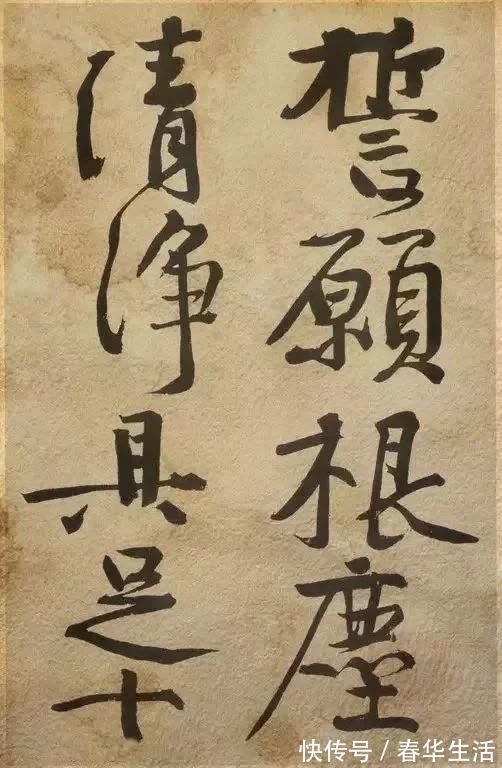 誓願根塵
清浄具足十
快传号/春华生活